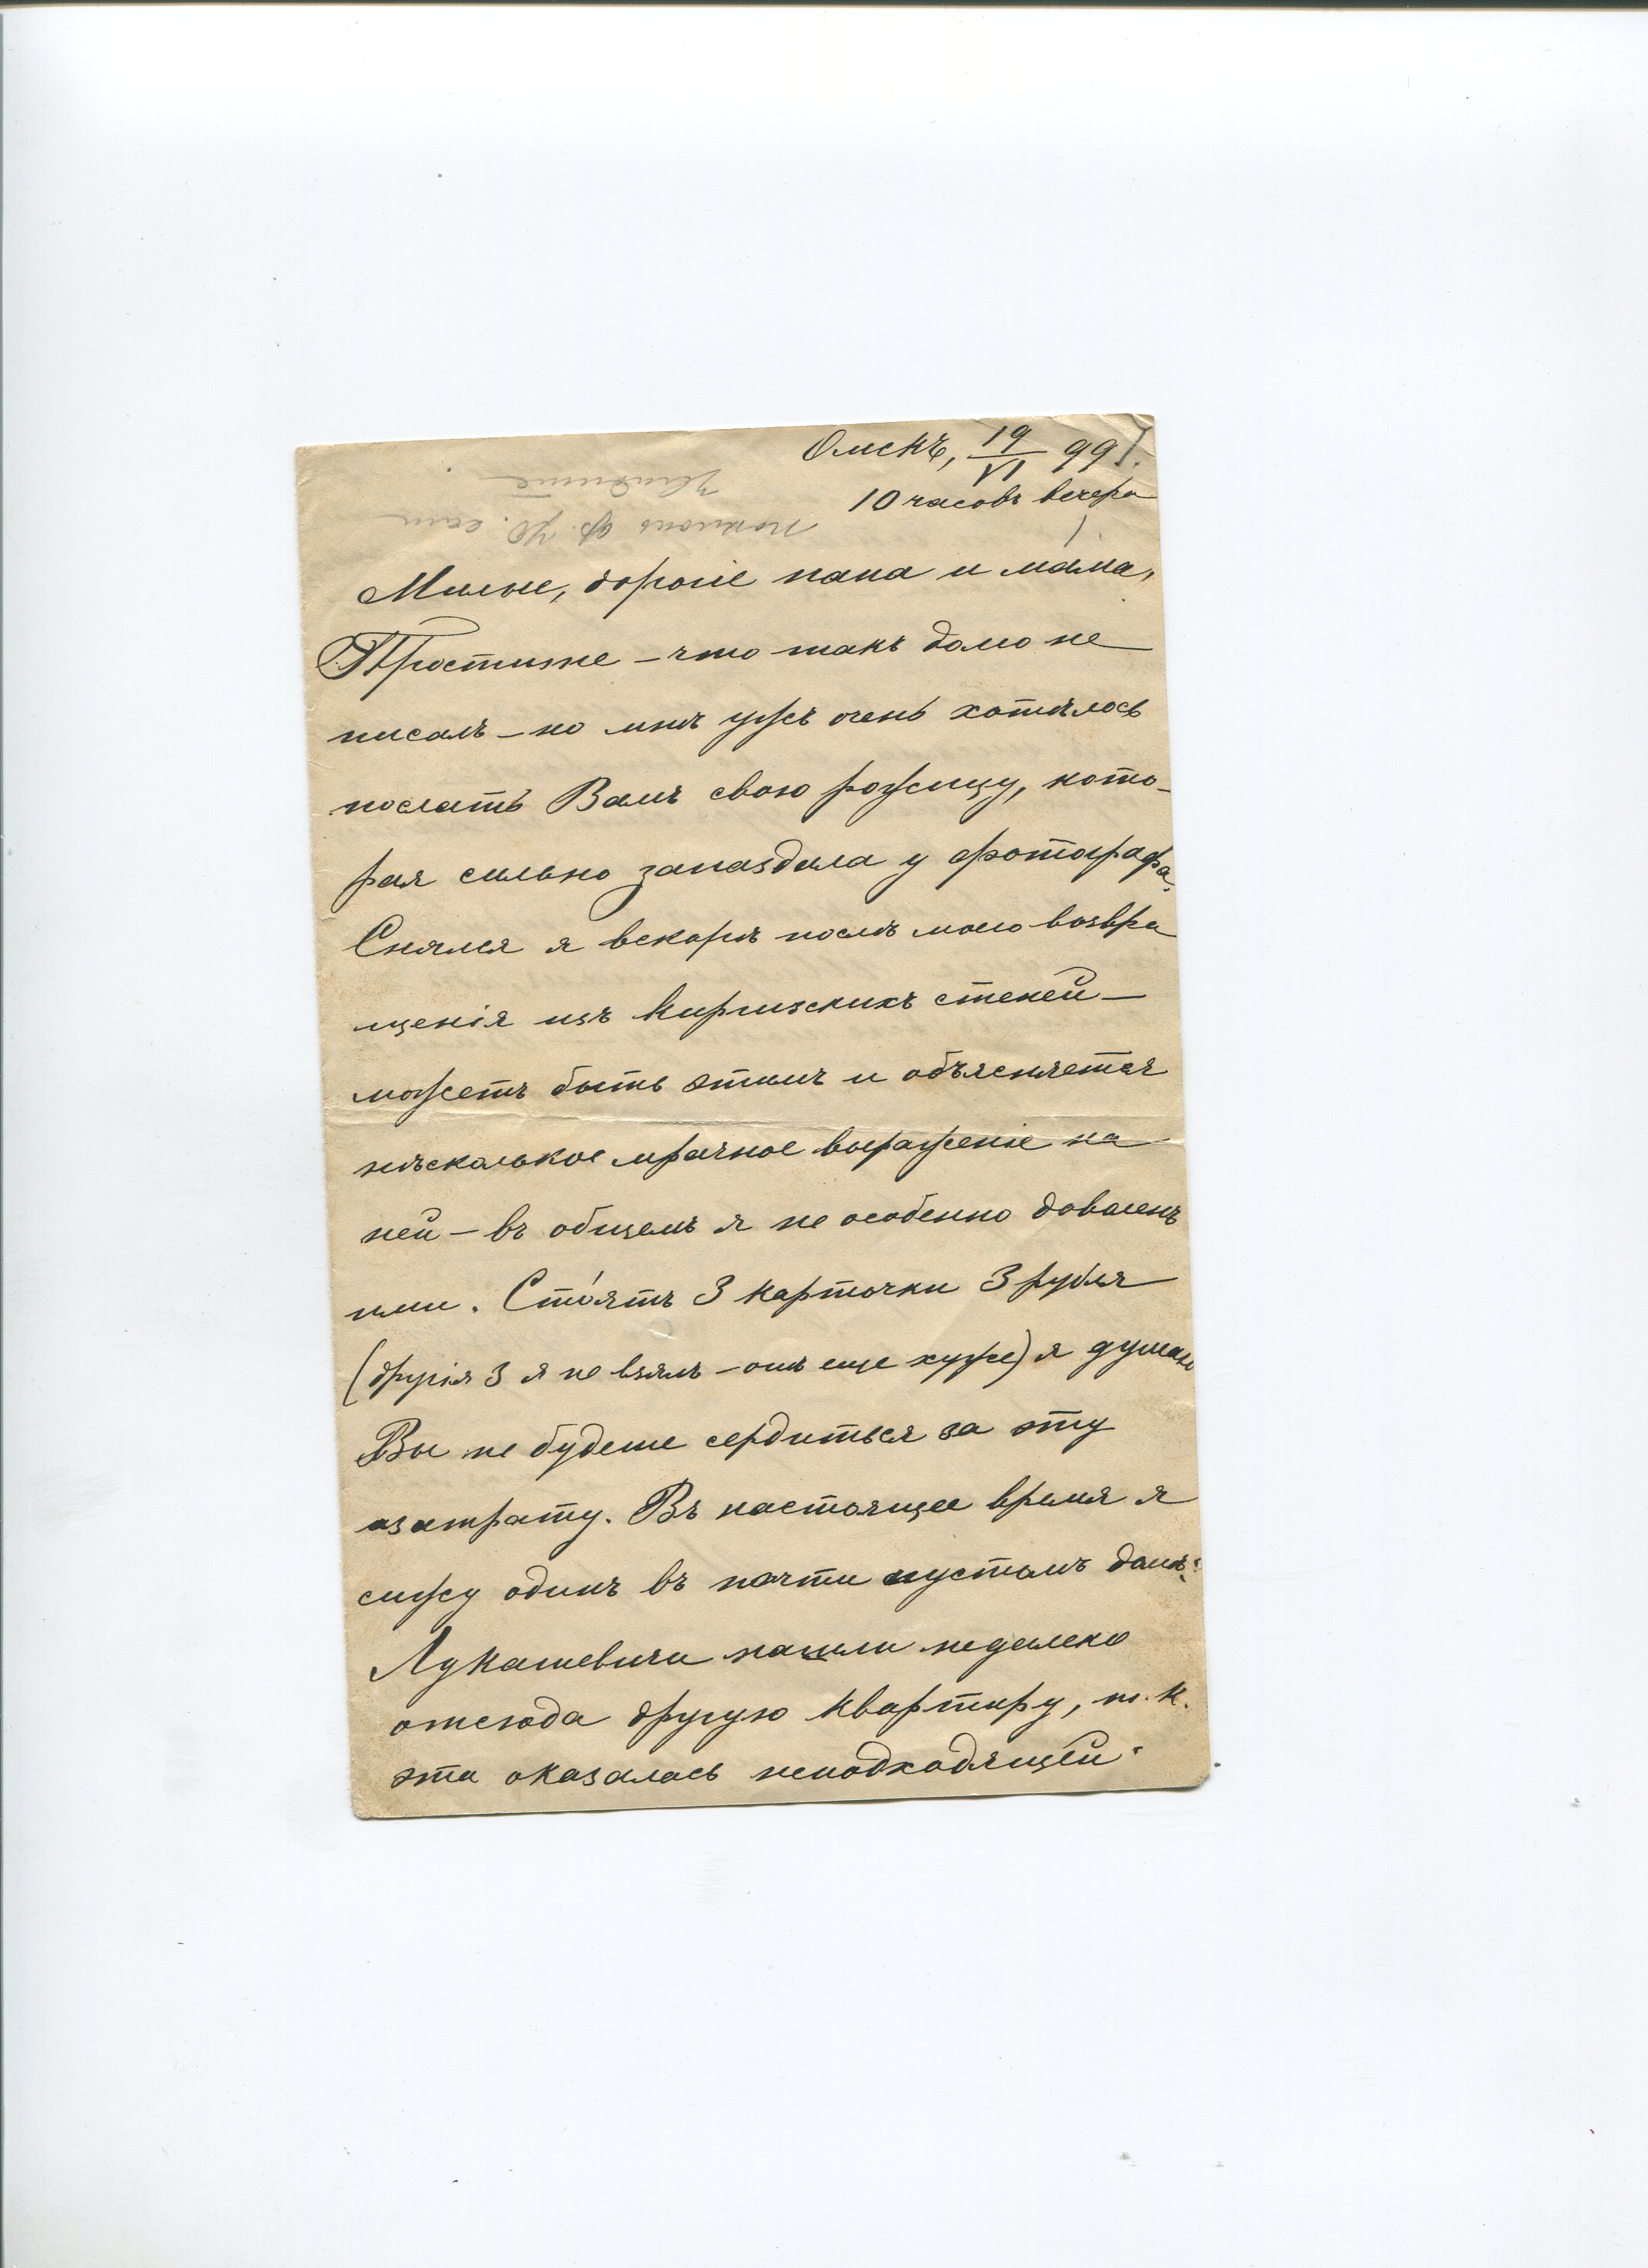 Омскъ, 19/VI 99 г.
10 часовъ вечера
Милые, дорогіе папа и мама,
Простите – что такъ долго не
писалъ – но мнѣ ужъ очень хотѣлось
послать Вамъ свою рожицу, кото-
рая сильно запаздала у фотографа.
Снялся я вскорѣ послѣ моего возвра
щенія изъ Киргизскихъ степей –
можетъ быть этимъ и объясняется
нѣсколькое мрачное выраженіе на
ней – въ общемъ я не особенно доволенъ
ими. Сто́ятъ 3 карточки 3 рубля
(другія 3 я не взялъ – онѣ еще хуже) я думаю
Вы не будете сердиться за эту
затрату. Въ настоящее время я
сижу одинъ въ почти пустомъ домѣ:
Лукашевичи нашли недалеко
отсюда другую квартиру, т.к.
эта оказалась неподходящей.